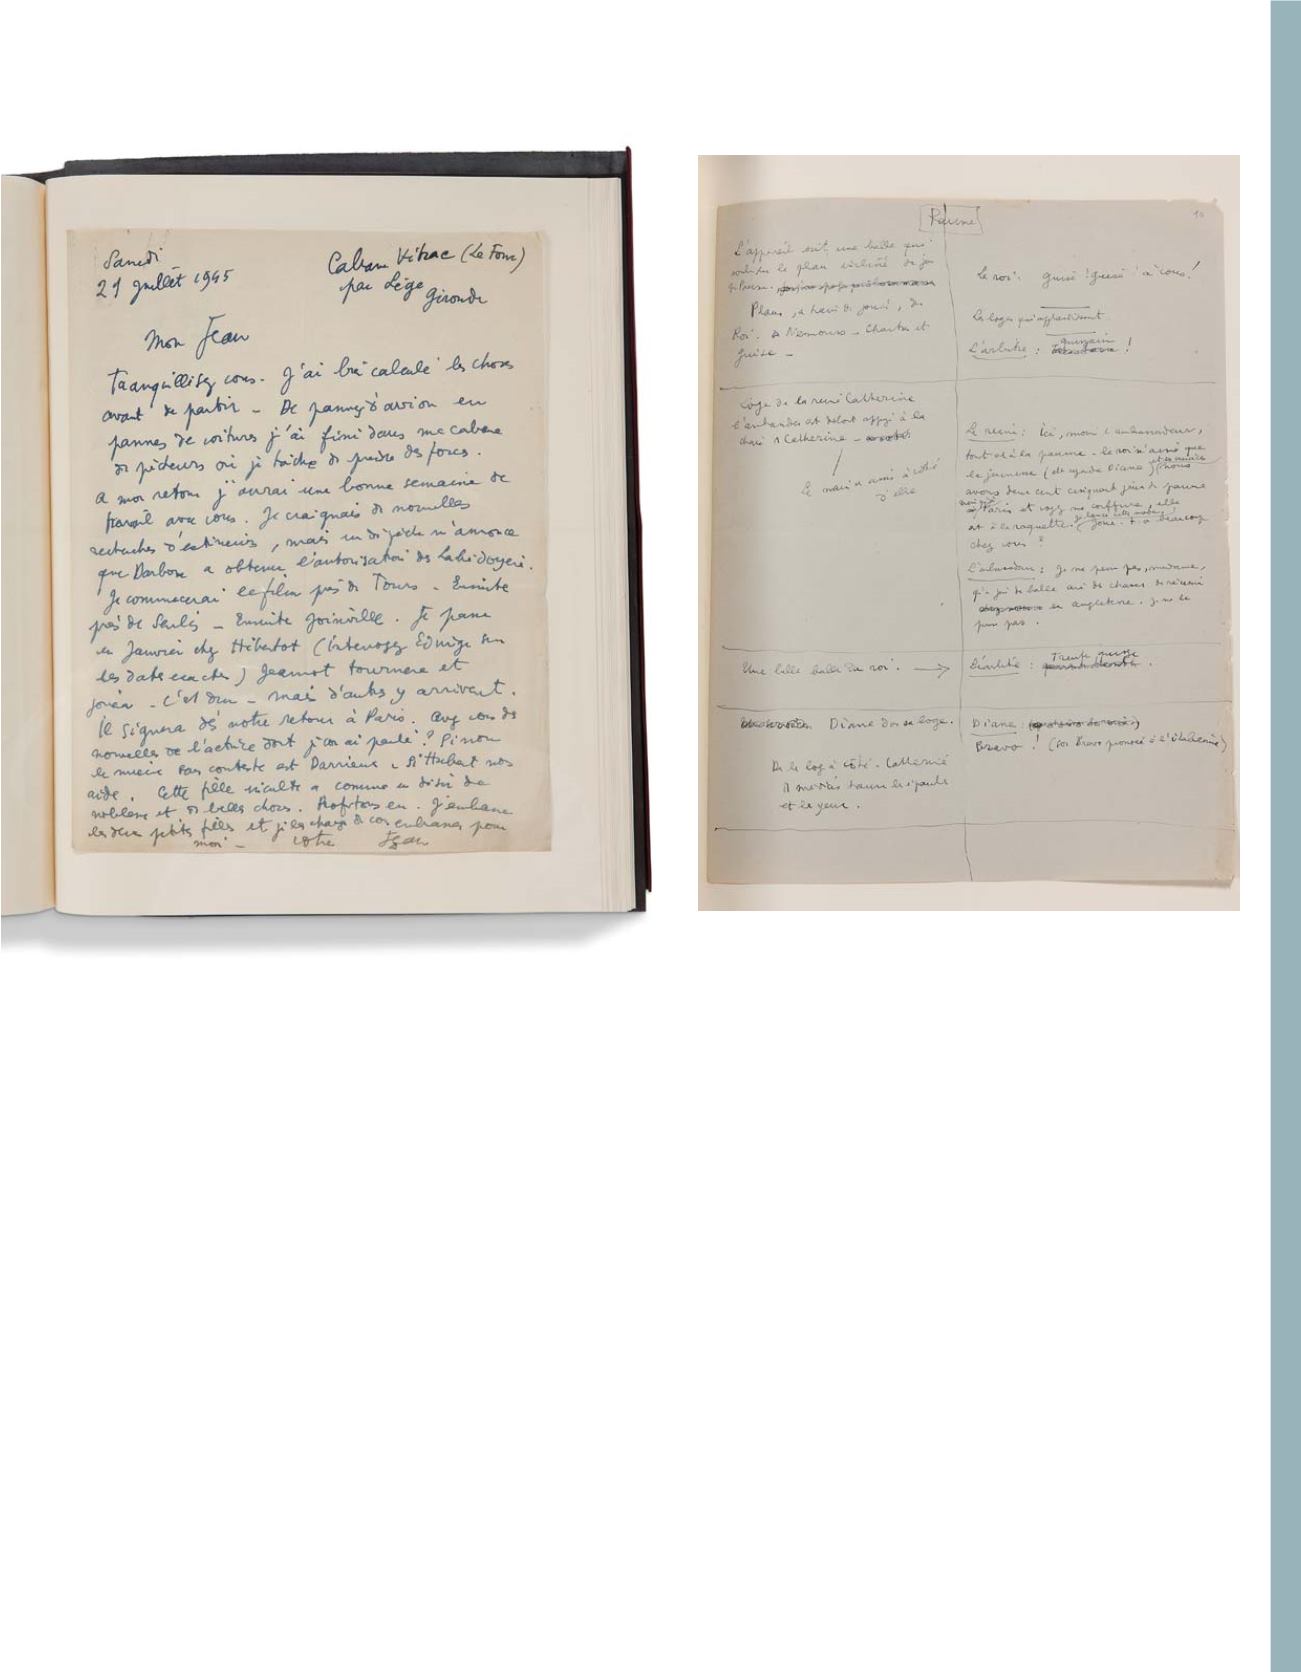 Samedi
21 Juillet 1945
Cabane Vitrac (Le Four)
par Lège
Gironde
Mon Jean
Tranquillisez vous. J'ai bien calculé les choses
avant de partir – De pannes d'avion en
pannes de voitures j'ai fini dans une cabane
de pêcheurs où je tâche de prendre des forces.
A mon retour j'aurai une bonne semaine de
travail avec vous. Je craignais de nouvelles
recherches d'extérieurs, mais un dépêche m'annonce
que Darbon a obtenu l'autorisation des Labédoyère.
Je commencerai le film près de Tours – Ensuite
près de Senlis – Ensuite Joinville. Je passe
en Janvier chez Hébertot (interrogez Edwige sur
les dates exactes) Jeannot tournera et
jouera – C'est dur – mais d'autres y arrivent.
Il signera dès notre retour à Paris. Avez vous des
nouvelles de l'actrice dont je vous ai parlé? Sinon
le mieux sans conteste est Darrieux si Hubert nous
aide. Cette fille inculte a comme un désir de
noblesse et de belles choses. Profitons en. J'embrasse
les deux petites filles et je les charge de vous embrasser pour
moi – votre Jean
Paume
10
L'appareil suit une balle qui
le plan incliné du jeu
de Paume.
Plans, à travers le jeu, du
Roi. de Nemours – Chartres et
Guise –
Le roi: Guise! Guise! à vous!
Les loges qui applaudissent
L'arbitre: !
Loge de la reine Catherine
l'ambassadeur est debout appuyé à la
chaise de Catherine –
Le nain est assis à côté
d'elle
La reine: Ici, mons l'ambassadeur,
tout est à la paume. le roi n'aime que
la jeunesse (elle regarde Diane) nous
avons deux cent cinquante jeux de paume
à Paris et voyez ma coiffure, elle
est à la raquette. Joue-t-on beaucoup
chez vous?
L'ambassadeur: Je ne pense pas, madame,
qu'un jeu de balle ait des chances de réussir
en angleterre. Je ne le
pense pas.
Une belle balle du roi. →
L'arbitre: Trente, quinze.
Diane dans sa loge.
Diane:
Bravo! (son Bravo prononcé à l'italienne)
De la loge à côté. Catherine
de médicis hausse les épaules
et les yeux.